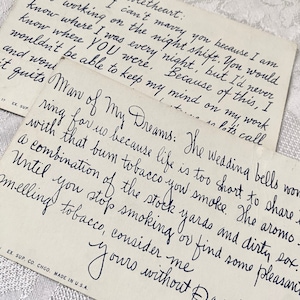 etheart:
I can't marry you because I am
working on the night shift. You would
know where I was every night, but I'd never
know where YOU were. Because of this, I
wouldn't be able to keep my mind on my work
and wou
lets call
it quits
EX. SUP. CO. CHGO.
Man of My Dreams: The wedding bells won
ring for us because life is too short to share
with that bum tobacco you smoke. The aroma
a combination of the stock yards and dirty sox
Until you stop smoking or find some pleasan
smelling tobacco, consider me
Yours without
EX. SUP. CO. CHGO. MADE IN U.S.A.